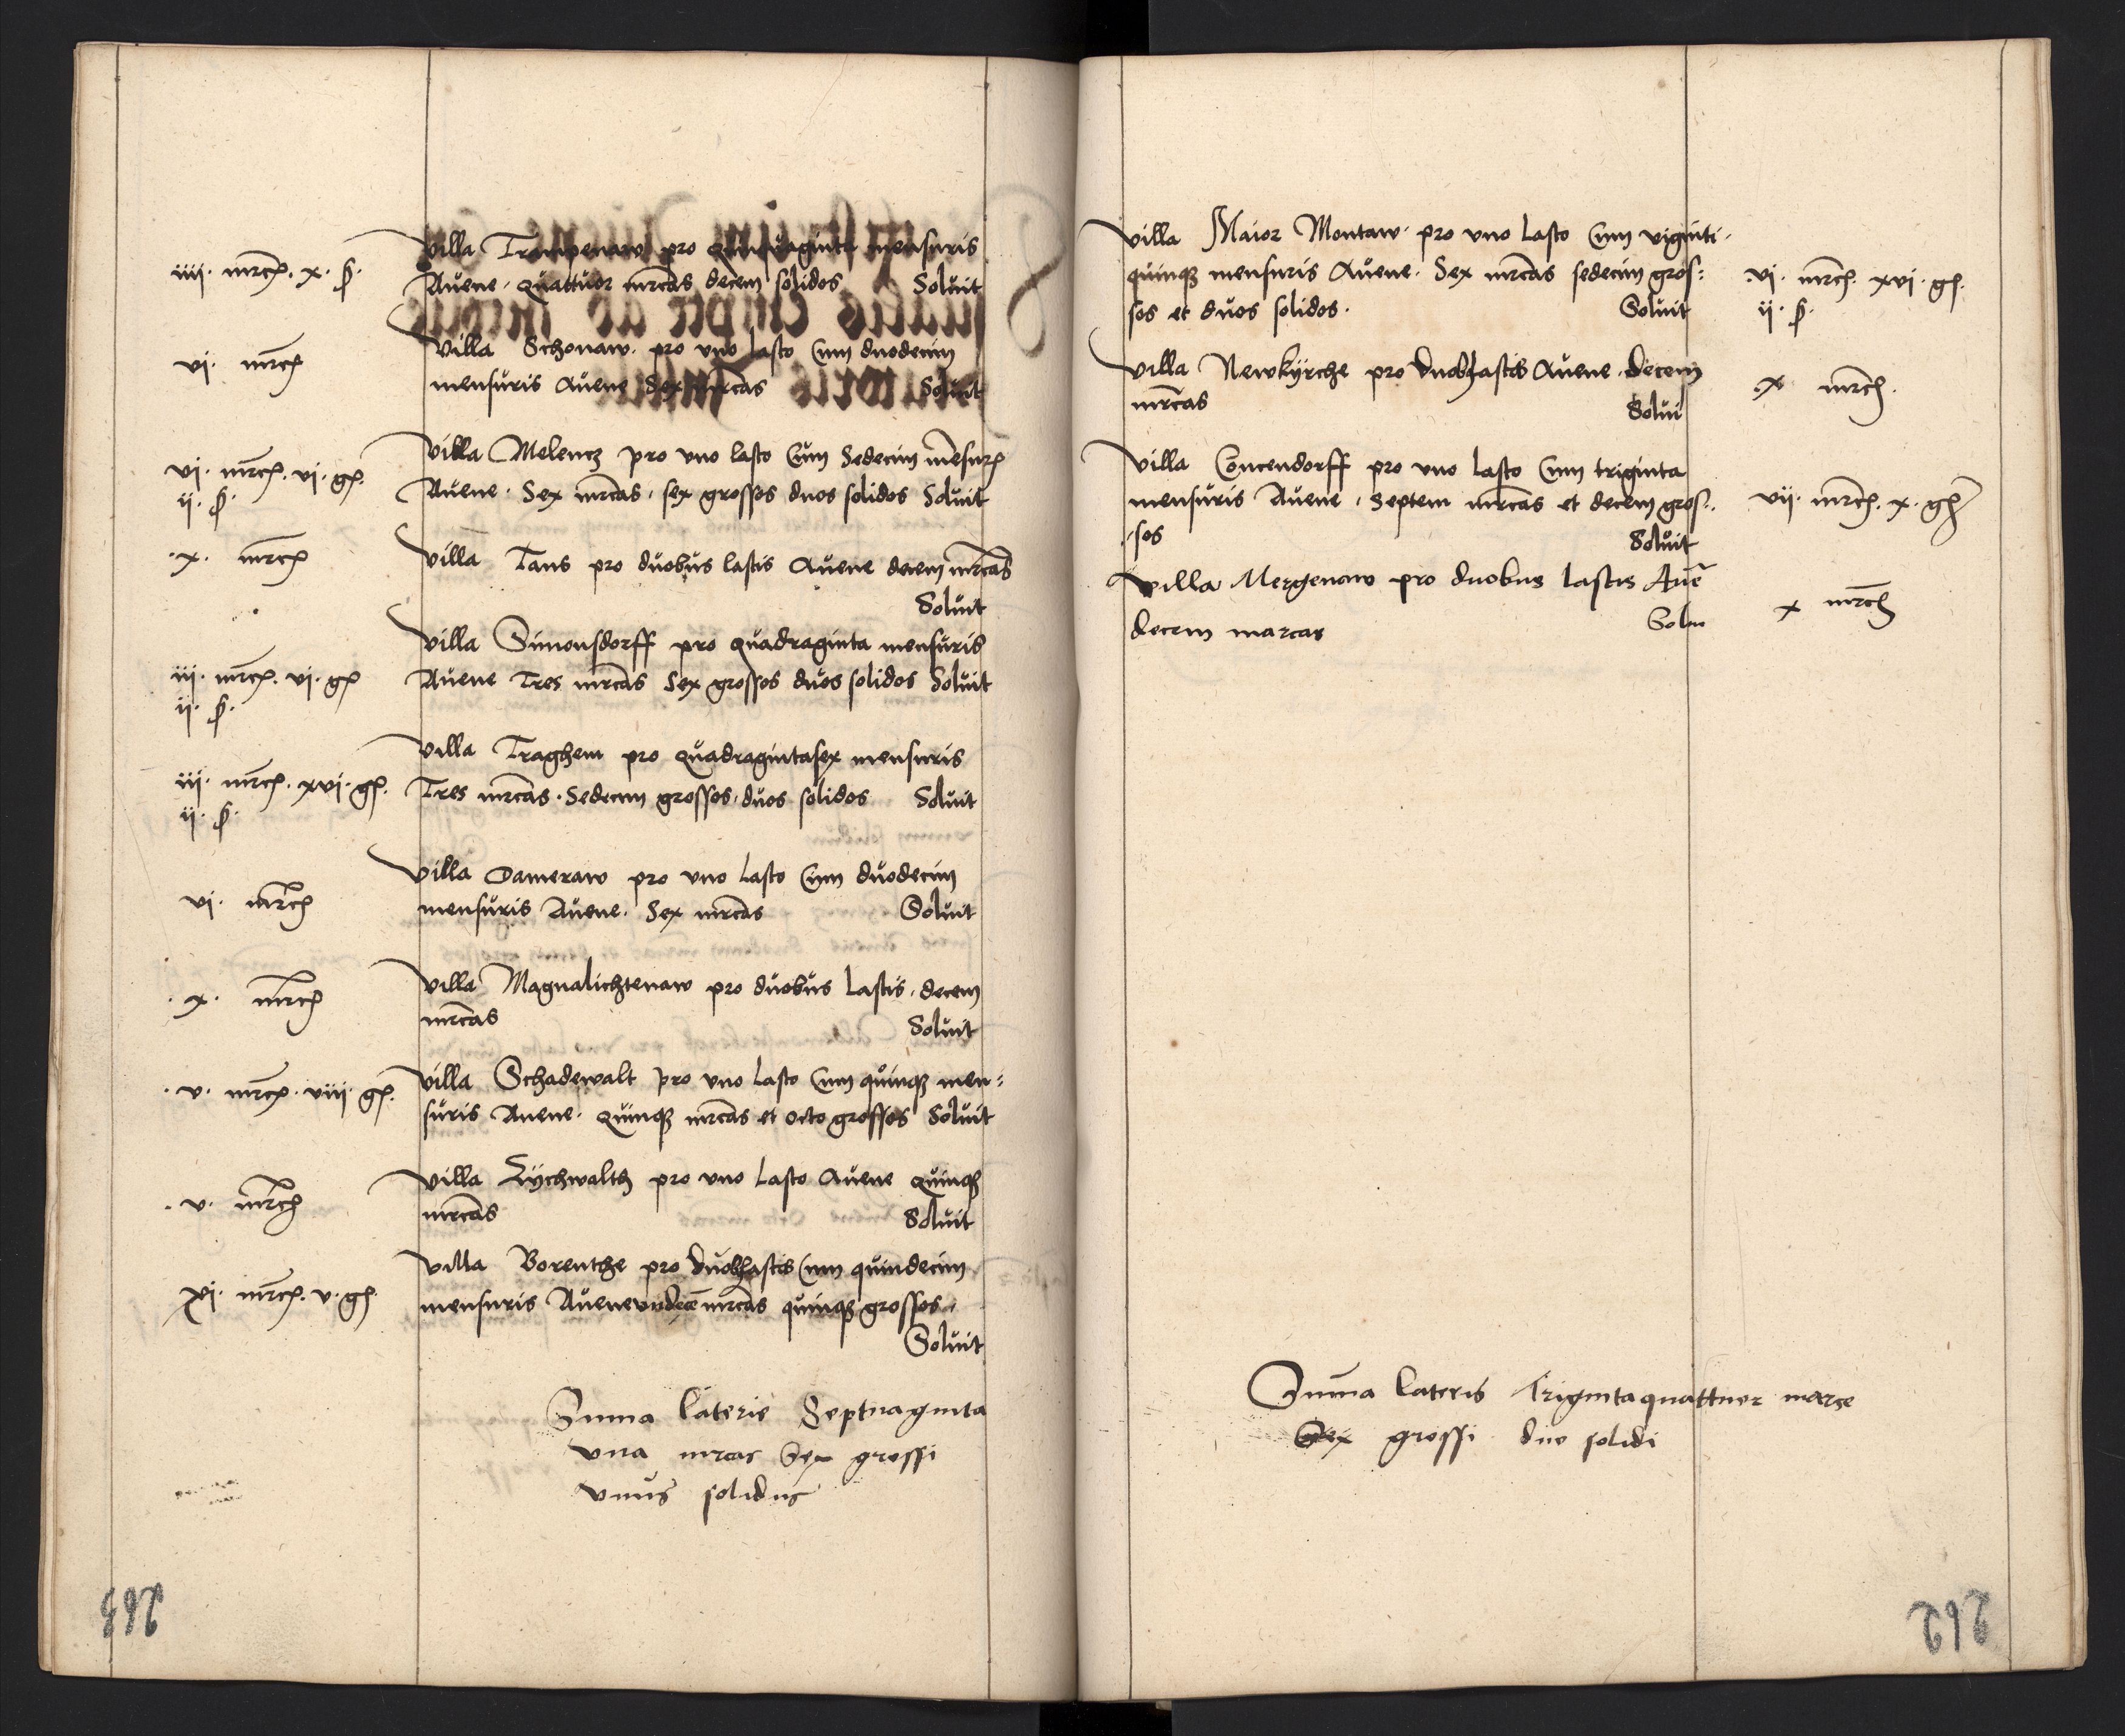 iiii · mrcɧ · x · ꝭ ·
Villa Trampenaw pro quinquaginta mensuris
Auene · quattuor mrcas decem solidos Soluit
vi · mrcɧ
Villa Schonaw · pro vno lasto Cum duodecim
mensuris Auene Sex mrcas Soluit
vi · mrcɧ · vi · gꝭ ·
ii · ꝭ ·
Villa Melencz pro vno lasto Cum Sedecim mēsurꝭ
Auene · Sex mrcas · sex grossos duos solidos Soluit
· x · mrcɧ
Villa Tans pro duobus lastis Auene decem mrcas
Soluit
iii · mrcɧ · vi · gꝭ
ii · ꝭ ·
Villa Simonsdorff pro quadraginta mensuris
Auene Tres mrcas Sex grossos duos solidos Soluit
iii · mrcɧ · xvi · gꝭ ·
ii · ꝭ ·
Villa Traghem pro quadragintasex mensuris
Tres mrcas · Sedecim grossos · duos solidos Soluit
vi · mrcɧ
Villa Dameraw pro vno lasto Cum duodecim
mensuris Auene · Sex mrcas Soluit
· x · mrcɧ
Villa Magnalichtenaw pro duobus lastis · decem
mrcas Soluit
· v · mrcɧ · viii · gꝭ ·
Villa Schadewalt pro vno lasto Cum quinqꝫ men:
suris Auene · quinqꝫ mrcas et octo grossos Soluit
· v · mrcɧ
Villa Lychwaltɧ pro vno lasto Auene quinqꝫ
mrcas Soluit
xi · mrcɧ · v · gꝭ ·
Villa Borenthe pro duobꝫ lastis Cum quindecim
mensuris Auene vndecē mrcas quinqꝫ grossos ·
Soluit
Suma lateris Septuaginta
vna mrcas Sex grossi
vnus solidus
263
Villa Maior Montaw · pro vno lasto Cum viginti ·
quinqꝫ mensuris Auene · Sex mrcas sedecim gros:
sos et duos solidos · Soluit
vi · mrcɧ · xvi · gꝭ ·
ii · ꝭ ·
Villa Newkÿrche pro duobꝫ lastis Auene · decem
mrcas Solui
· x mrcɧ ·
Villa Concendorff pro vno lasto Cum triginta
mensuris Auene · Septem mrcas et decem gros:
sos Soluit
vii · mrcɧ · x · gꝭ
Villa Mergenaw pro duobus lastis Auē
decem marcas Solu
x mrcɧ
Sum̄a lateris Trigintaquattuor marce
Sex grossi duo solidi
262